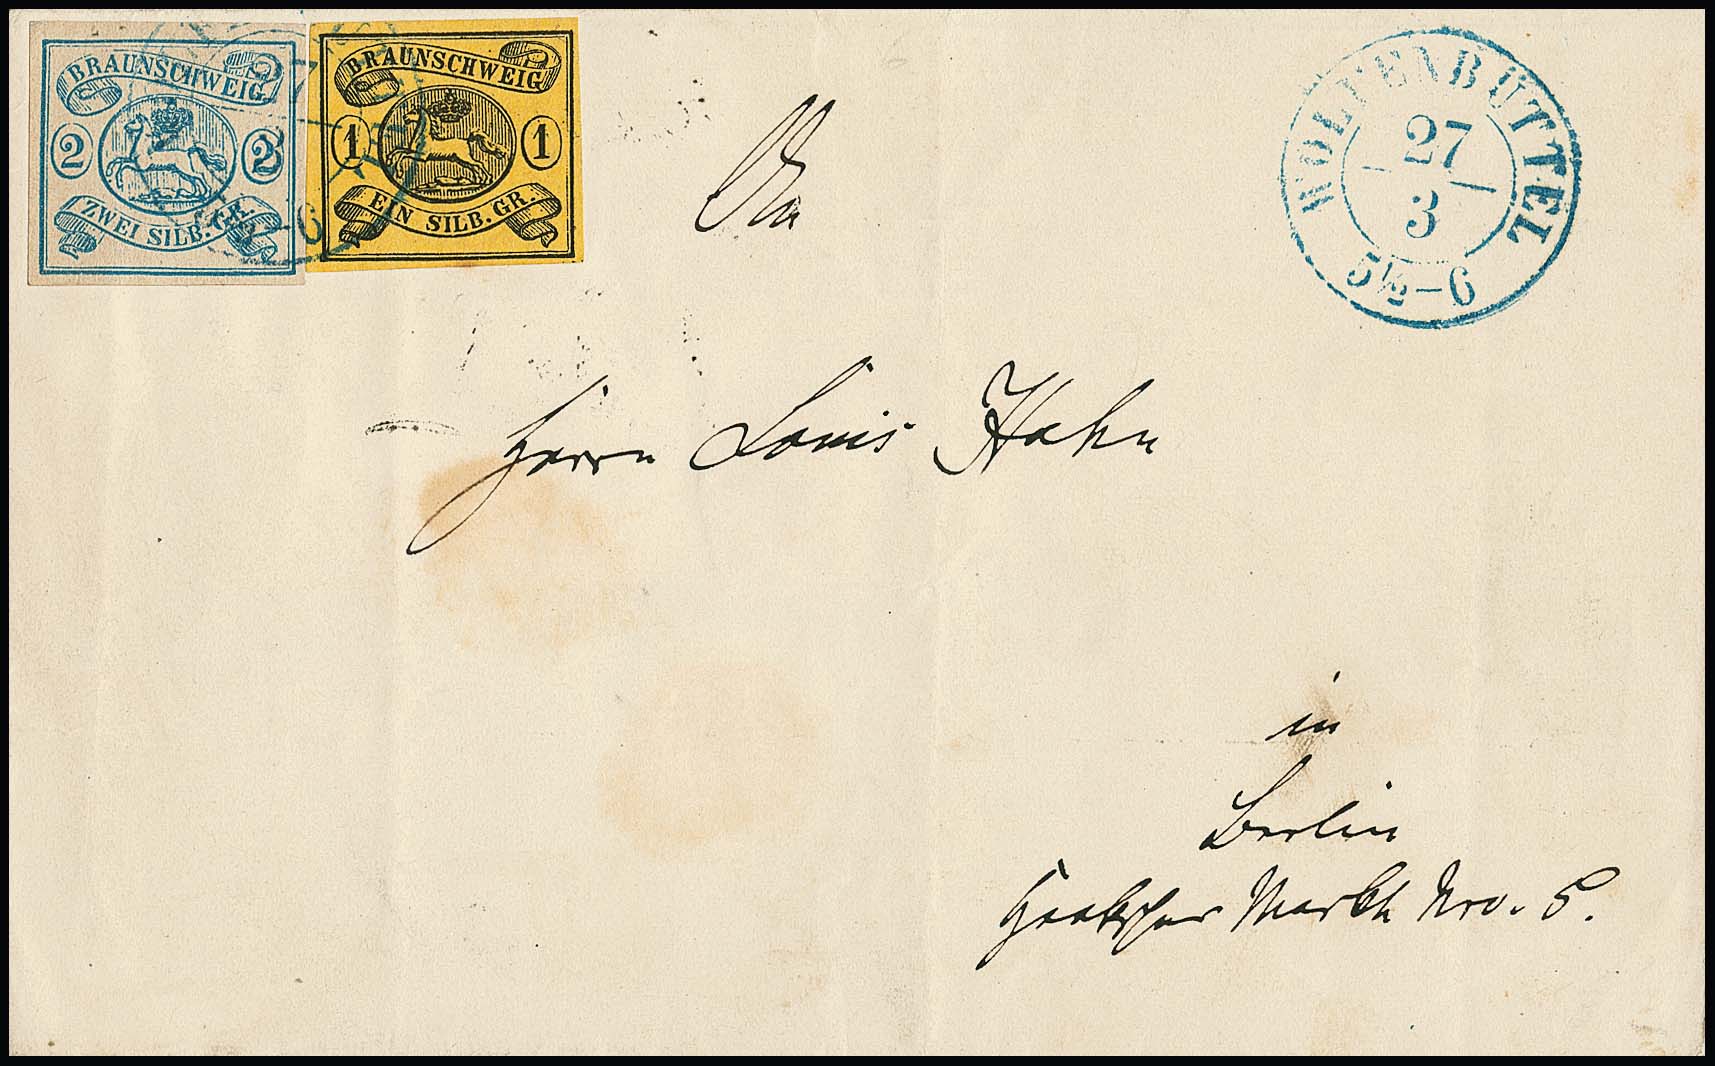 BRAUNSCHWEIG
2 2
ZWEI SILB. GR.
BRAUNSCHWEIG
1 1
EIN SILB. GR.
27
5½-6
WOLFENBÜTTEL
27
3
5½-6
An
Herrn Louis Hahn
in
Berlin
Haakscher Markt Nro. 5.